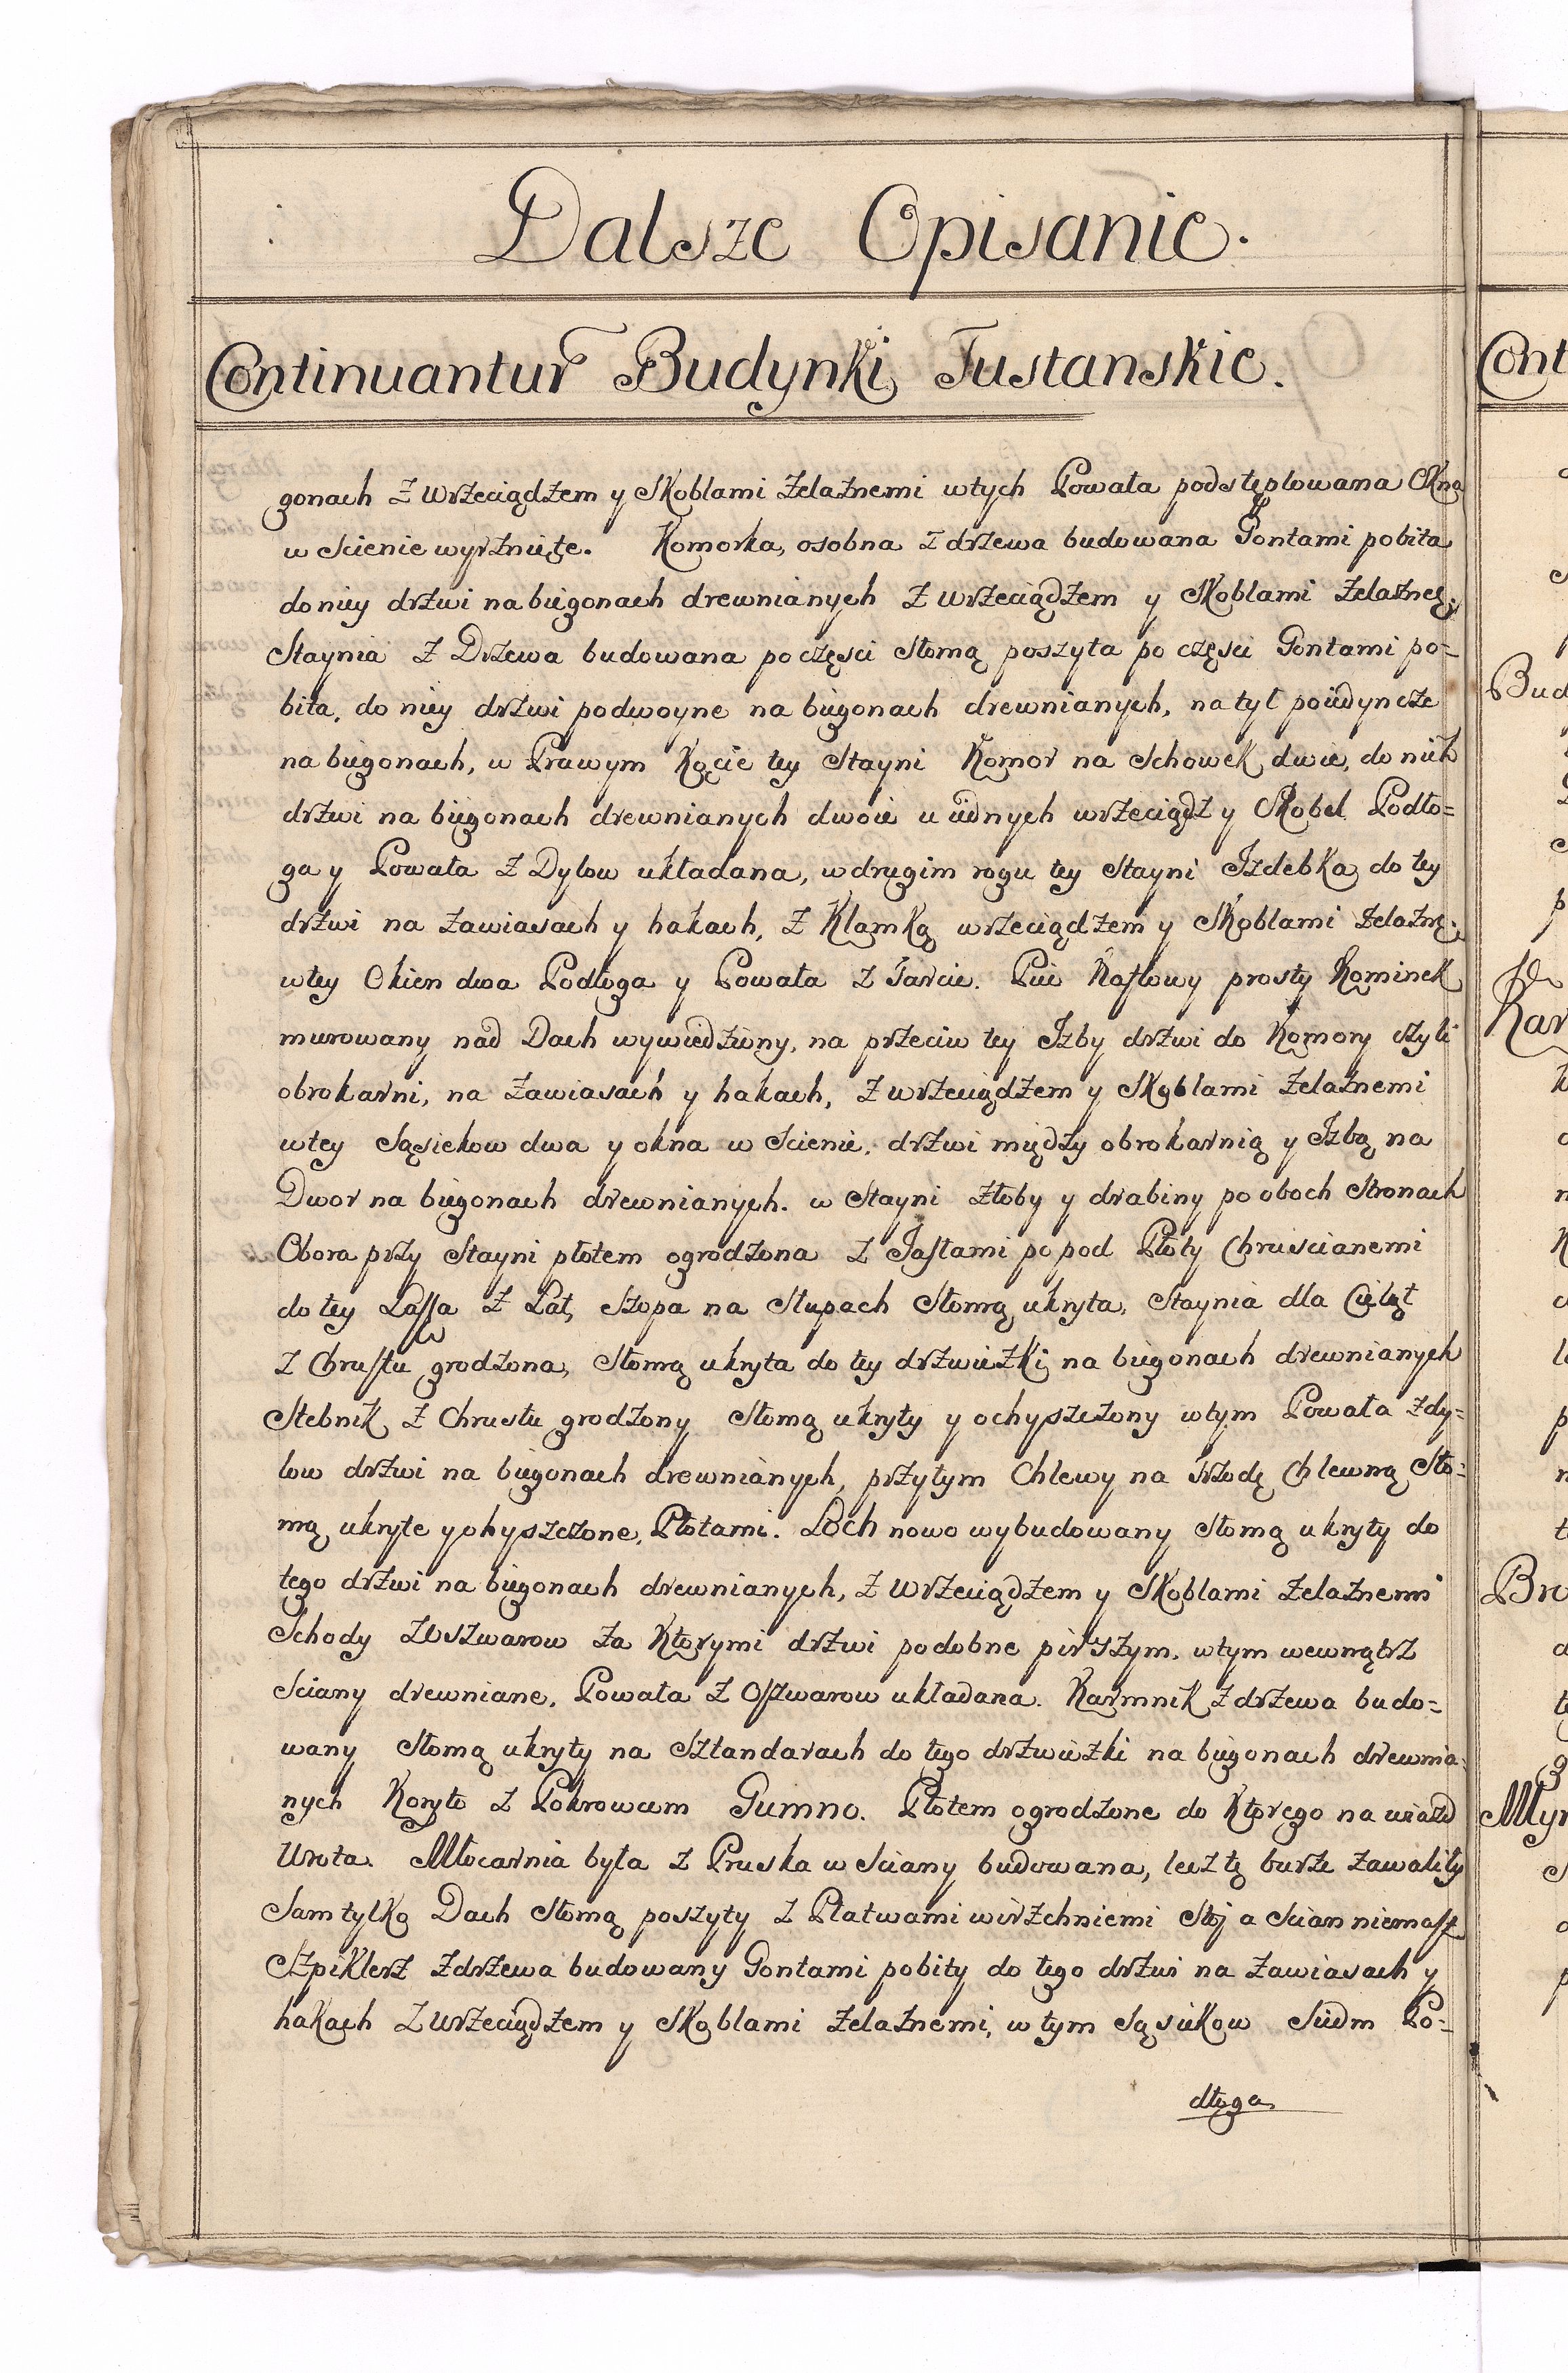 Dalsze Opisanie.
Continuantur Budynki Tustanskie.
gonach z wrzeciądzem y Skoblami żelaznemi w tych Powała podstęplowana Okna
w Scienie wyrznięte. Komorka, osobna z drzewa budowana Gontami pobita
do niey drzwi na biegonach drewnianych z wrzeciądzem y Skoblami żelazne.
Staynia z Drzewa budowana po części Słomą poszyta po części Gontami po=
bita, do niey drzwi podwoyne na biegonach drewnianych, na tył poiedyncze
na biegonach, w Prawym Kącie tey Stayni Komor na Schowek dwie, do nich
drzwi na biegonach drewnianych dwoie u iednych wrzeciądz y Skobel Podło=
ga y Powała z Dylow układana, w drugim rogu tey Stayni Izdebka do tey
drzwi na zawiasach y hakach, z Klamką wrzeciądzem y Skoblami żelazne.
w tey Okien dwa Podłoga y Powała z Tarcic. Piec Kaflowy prosty Kominek
murowany nad Dach wywiedziony, na przeciw tey Izby drzwi do Komory czyli
obrokarni, na zawiasach y hakach, z wrzeciądzem y Skoblami żelaznemi
w tey Sąsiekow dwa y okna w Scienie. drzwi między obrokarnią y Izbą na
Dwor na biegonach drewnianych. w Stayni żłoby y drabiny po oboch Stronach
Obora przy Stayni płotem ogrodzona z Jasłami po pod Płoty Chruscianemi
do tey Lassa z Łat, Szopa na Słupach Słomą ukryta, Staynia dla Cieląt
z Chrustu grodzona, Słomą ukryta do tey drzwiczki na biegonach drewnianych
Stebnik z Chrustu grodzony Słomą ukryty y ochyszczony w tym Powała z dy=
low drzwi na biegonach drewnianych, przytym Chlewy na trzodę Chlewną Sło=
mą ukryte y ohyszczone, Płotami. Loch nowo wybudowany Słomą ukryty do
tego drzwi na biegonach drewnianych, z wrzeciądzem y Skoblami żelaznemi
Schody z Oszwarow za Ktorymi drzwi podobne pirszym. w tym wewnątrz
Sciany drewniane, Powała z Oszwarow układana. Karmnik z drzewa budo=
wany Słomą ukryty na Sztandarach do tego drzwiczki na biegonach drewnia
nych Koryto z Pokrowcem Gumno. Płotem ogrodzone do Ktorego na wiazd
Wrota. Młocarnia była z Pruska w Sciany budowana, lecz tę burze zawaliły
Sam tylko Dach Słomą poszyty z Płatwami wirzchniemi Stoj a Scian niemasz
Szpiklerz z drzewa budowany Gontami pobity do tego drzwi na zawiasach y
hakach z wrzeciądzem y Skoblami żelaznemi, w tym Sąsiekow Siedm Po=
dłoga
Cont
Bud
Kar
Bro
Młyn